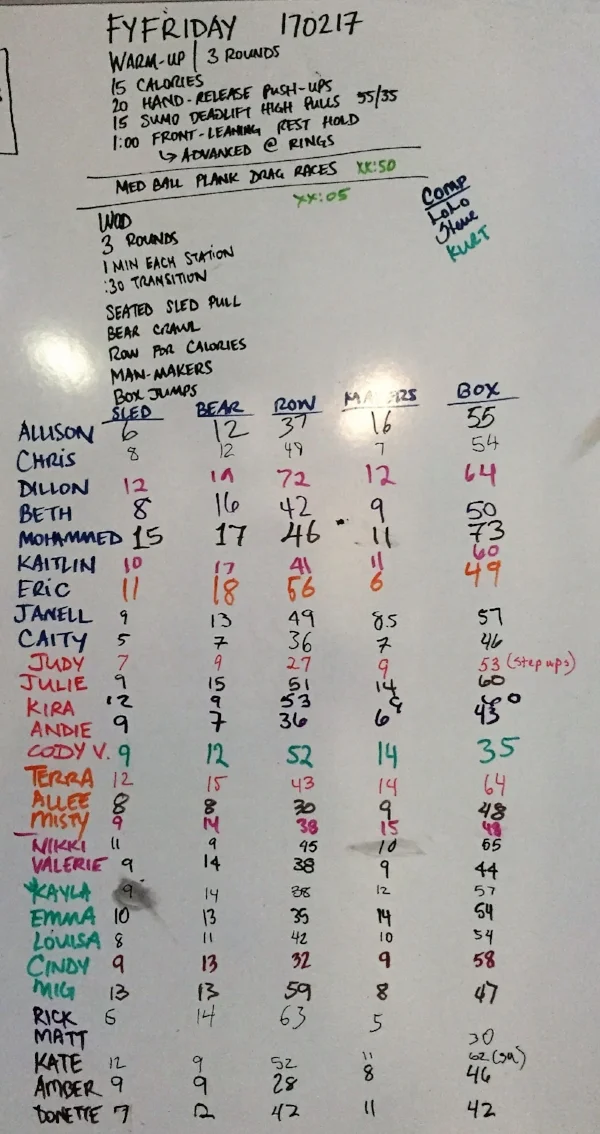 FYFRIDAY 170217
WARM-UP | 3 ROUNDS
15 CALORIES
20 HAND-RELEASE PUSH-UPS
15 SUMO DEADLIFT HIGH PULLS 55/35
1:00 FRONT-LEANING REST HOLD
↳ ADVANCED @ RINGS
MED BALL PLANK DRAG RACES XX:50
XX:05
COMP
LOLO
Steve
KURT
WOD
3 ROUNDS
1 MIN EACH STATION
:30 TRANSITION
SEATED SLED PULL
BEAR CRAWL
ROW FOR CALORIES
MAN-MAKERS
BOX JUMPS
SLED BEAR ROW BOX
ALLISON 6 12 37 16 55
CHRIS 8 12 49 7 54
DILLON 12 19 72 12 64
BETH 8 16 42 9 50
MOHAMMED 15 17 46 11 73
KAITLIN 10 17 41 11 60
ERIC 11 18 56 6 49
JANELL 9 13 49 8.5 57
CAITY 5 7 36 7 46
JUDY 7 9 27 9 53 (step ups)
JULIE 9 15 51 14 60
KIRA 12 9 53
ANDIE 9 7 36 6 43
CODY V. 9 12 52 14 35
TERRA 12 15 43 14 64
ALLEE 8 8 30 9 48
MISTY 9 14 38 15 48
NIKKI 11 9 45 10 65
VALERIE 9 14 38 9 44
KAYLA 9 14 38 12 57
EMMA 10 13 35 14 54
LOUISA 8 11 42 10 54
CINDY 9 13 32 9 58
MIG 13 13 59 8 47
RICK 6 14 63 5
MATT 30
KATE 12 9 52 11 62
AMBER 9 9 28 8 46
DONETTE 7 12 42 11 42